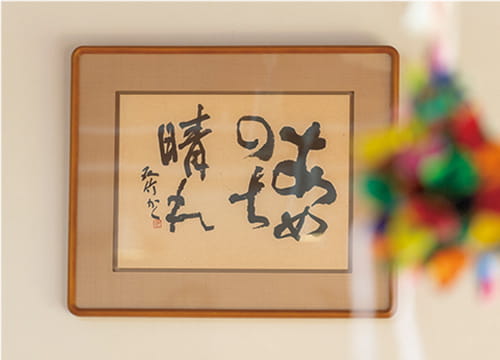 あめ
のち
晴れ